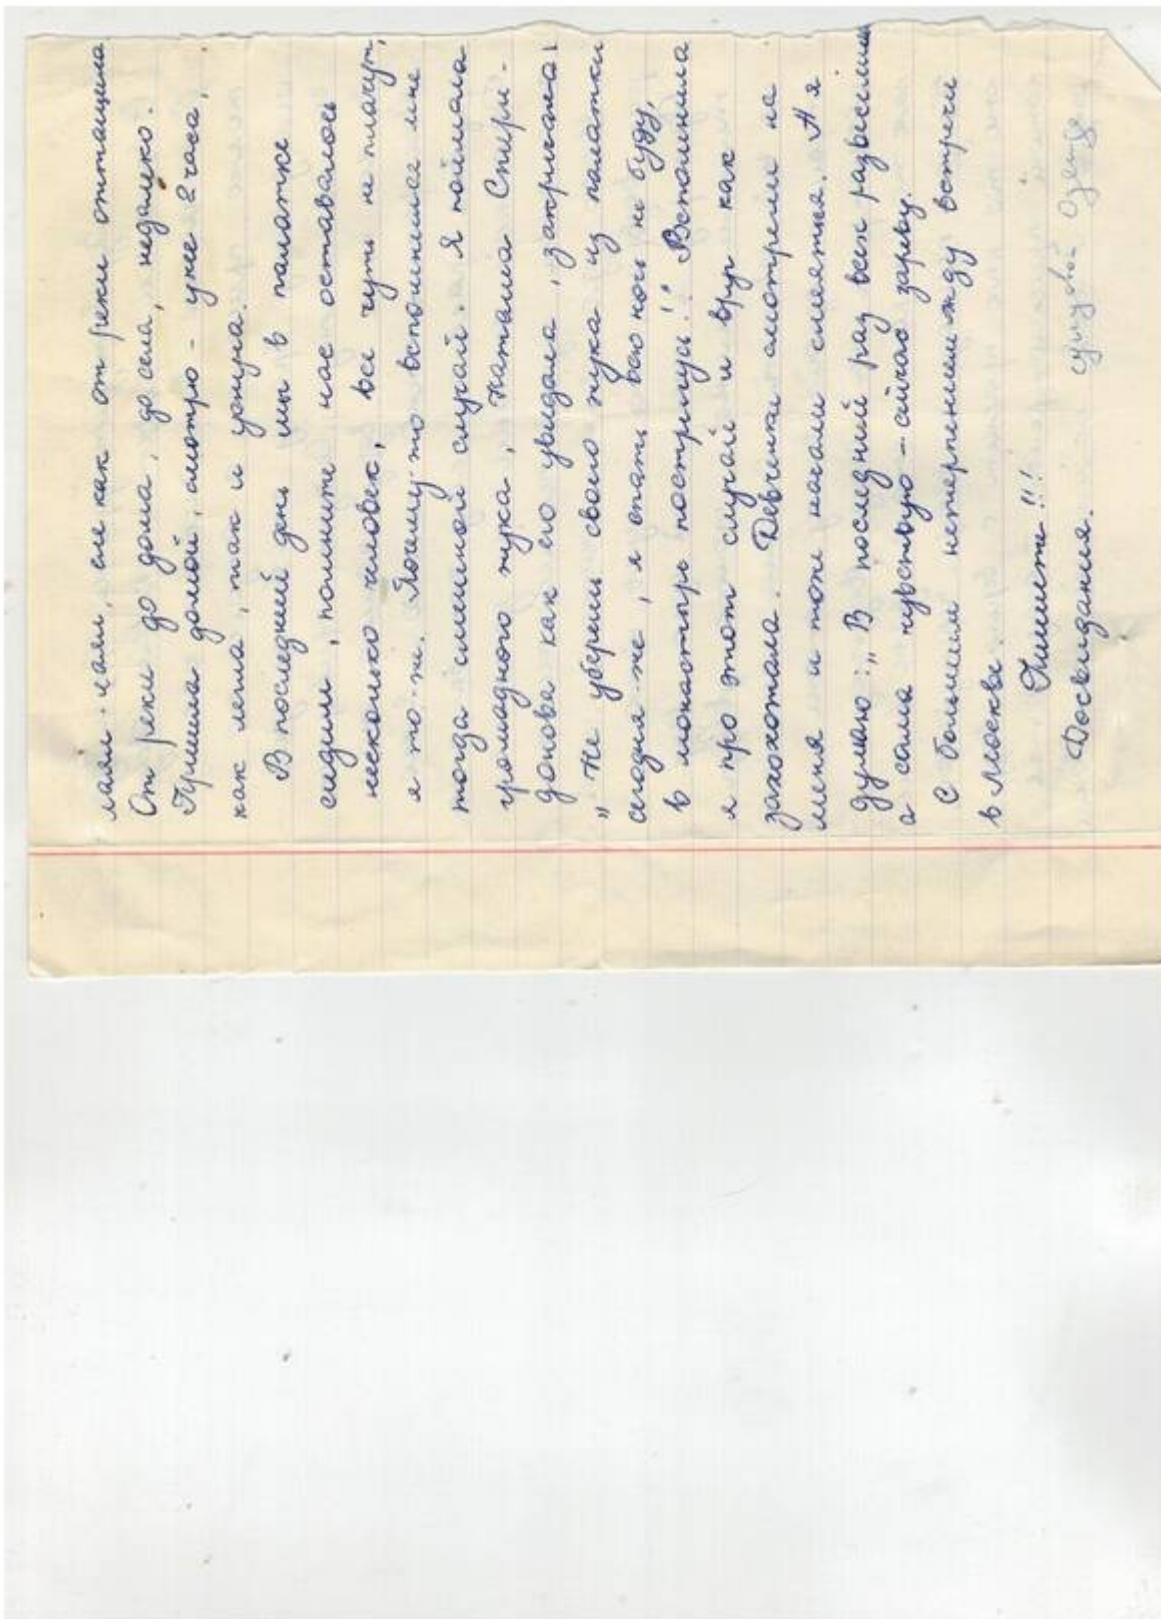 лаял-лаял, еле как от реки оттащила.
От реки до дома, до села, недалеко.
Пришла домой, смотрю - уже 2 часа,
как легла, так и уснула.
В последний день мы в палатке
сидим, помните нас оставалось
несколько человек, все чуть не плачут,
я то-же. Почему-то вспомнился мне
тогда смешной случай. Я поймала
громадного жука, Наташа Спири-
донова как его увидала, закричала:
„Не уберёшь своего жука из палатки
сегодня-же, я спать всю ночь не буду,
в монастырь постригусь!!" Вспомнила
я про этот случай и вдруг как
захохотала. Девченки смотрели на
меня и тоже начали смеяться. А я
думаю: „В последний раз всех развеселила
а сама чувствую - сейчас зареву.
С большим нетерпением жду встречи
в Москве.
Пишите!!!
Досвидания.